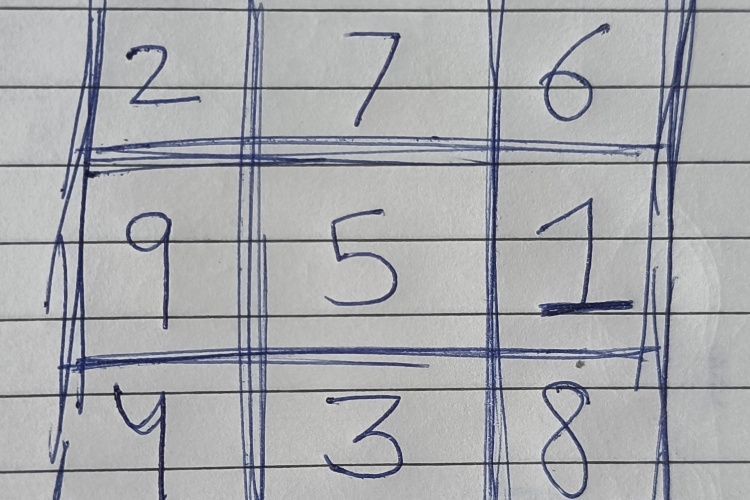 2 7 6
9 5 1
4 3 8